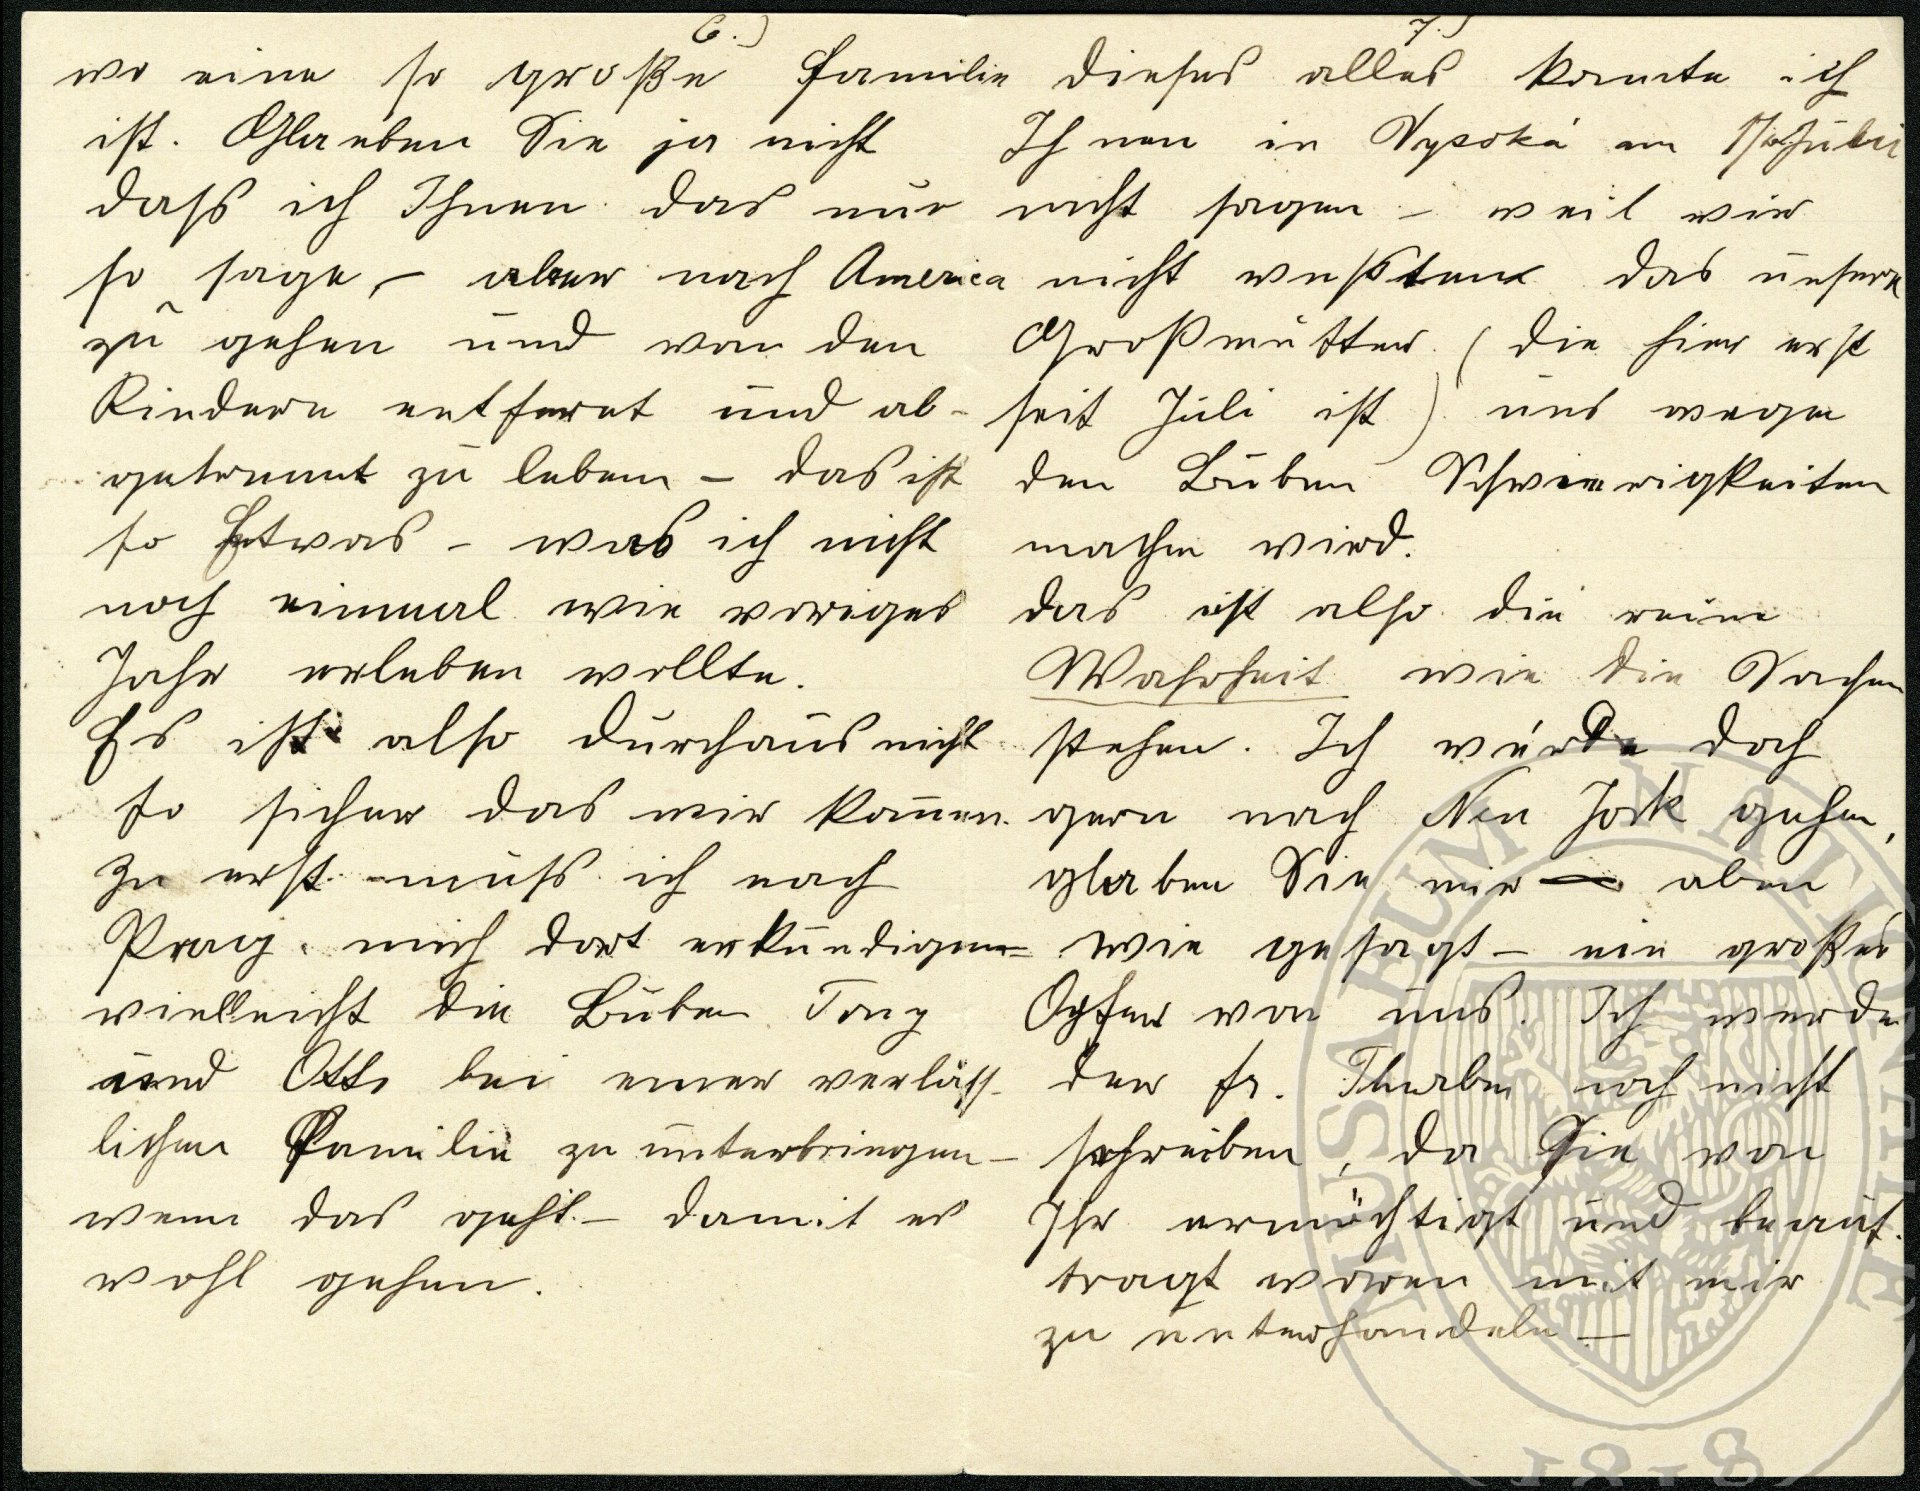 6.)
wo eine so große Familie
ist. Glauben Sie ja nicht
dass ich Ihnen das nur
so sage, – aber nach America
zu gehen und von den
Kindern entfernt und ab-
getrennt zu leben – das ist
so Etwas – was ich nicht
noch einmal wie voriges
Jahr erleben wollte.
Es ist also durchaus nicht
so sicher das wir kommen.
Zu erst muss ich nach
Prag. mich dort erkundigen –
vielleicht die Buben Tony
und Otto bei einer verläss-
lichen Familie zu unterbringen –
wenn das geht – damit es
wohl gehen.
7.)
dieses alles konnte ich
Ihnen in Vysoká am
nicht sagen – weil wir
nicht wußten das unsere
Großmutter (die hier erst
seit Juli ist) uns wegen
den Buben Schwierigkeiten
machen wird.
das ist also die reine
Wahrheit wie die Sachen
stehen. Ich würde doch
gern nach New York gehen,
glaben Sie mir – aber
wie gesagt – ein großes
Opfer von uns. Ich werde
der Fr. Thurber noch nicht
schreiben, da Sie von
Ihr ermächtigt und beauf-
tragt waren mit mir
zu unterhandeln –
MUSAEUM NATIONALE
1818